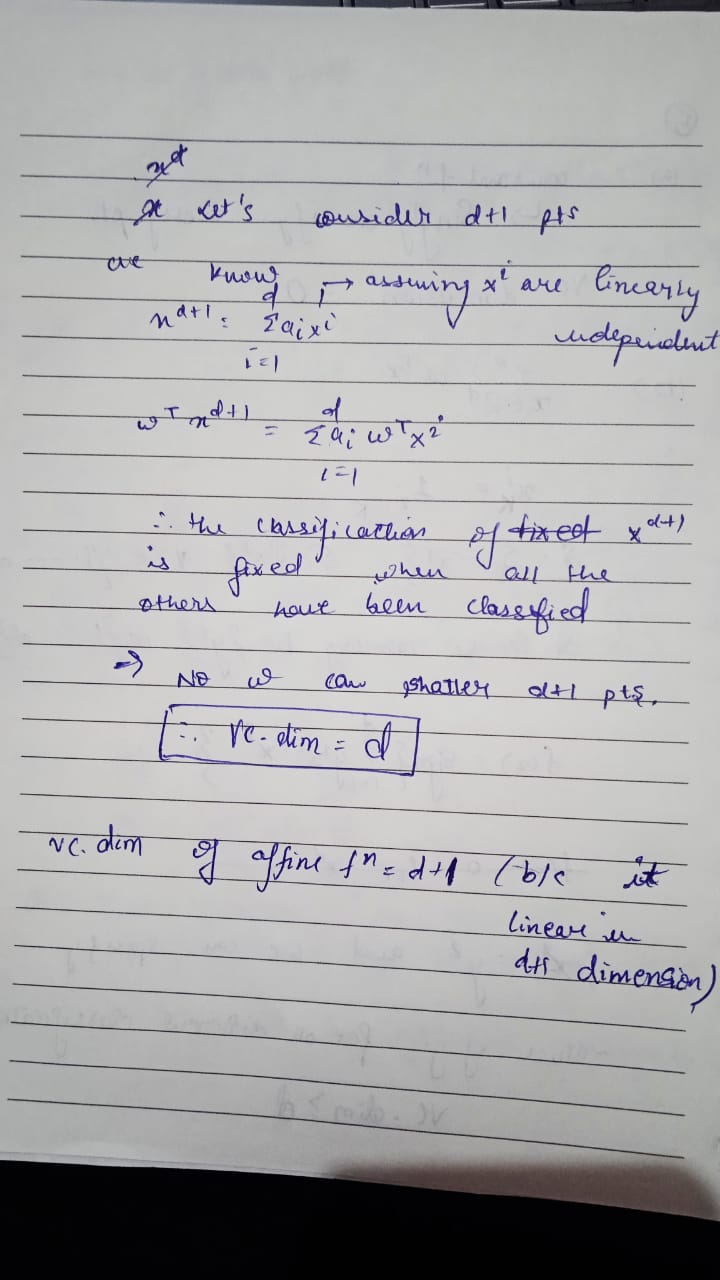 x^d
x Let's consider d+1 pts
we know → assuming x^i are linearly independent
x^{d+1} = Σ_{i=1}^{d} a_i x^i
w^T x^{d+1} = Σ_{i=1}^{d} a_i w^T x^i
∴ the classification of fixed x^{d+1}
is fixed when all the
others have been classified
⇒ No w can shatter d+1 pts.
∴ VC-dim = d
VC. dim of affine f^n = d+1 (b/c it
linear in
d+1 dimension)